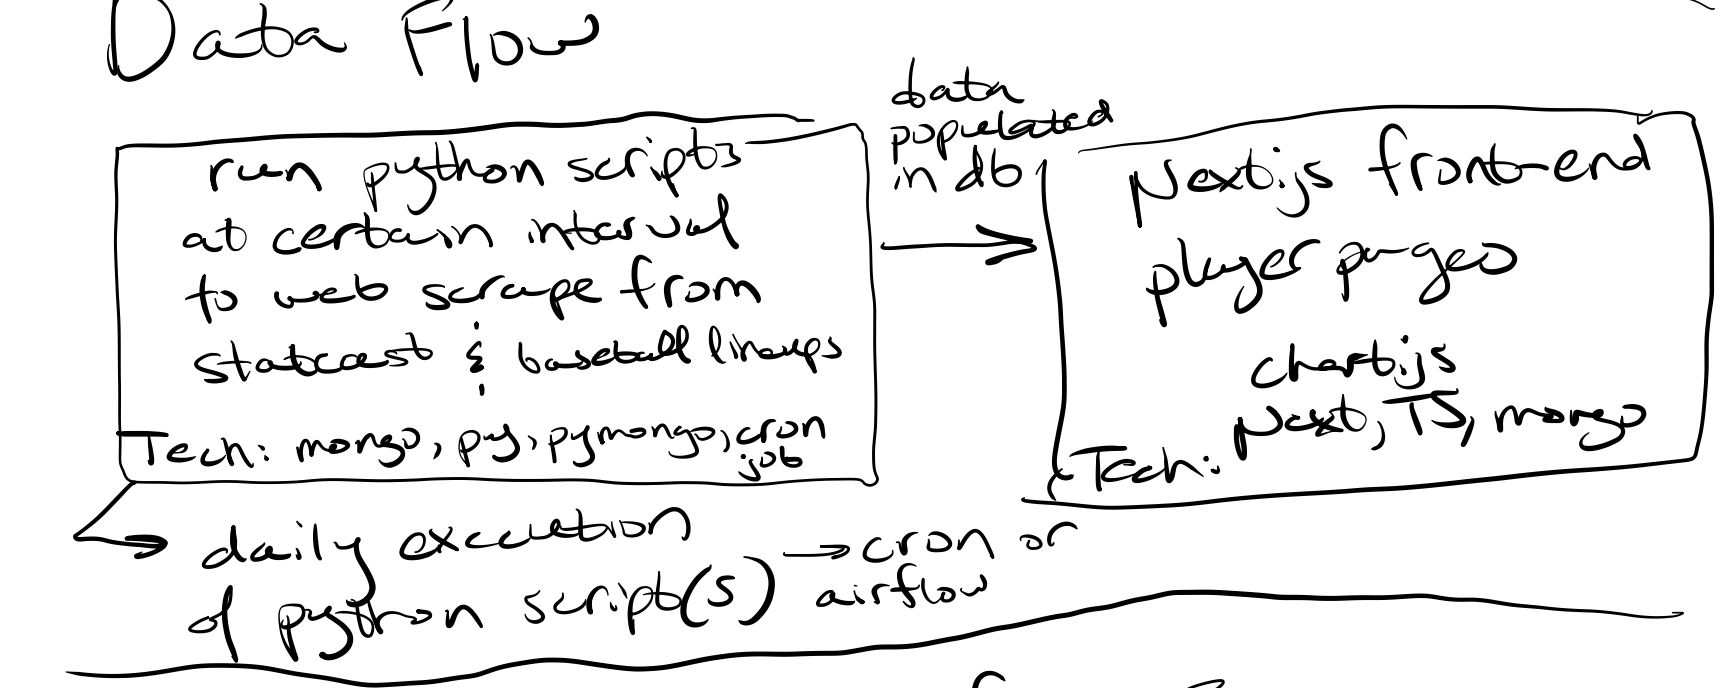 Data Flow
run python scripts
at certain interval
to web scrape from
statcast & baseball lineups
Tech: mongo, py, pymongo, cron
job
data
populated
in db
Next.js front-end
player pages
chart.js
Next, TS, mongo
Tech:
daily execution
of python script(s)
→ cron or
airflow